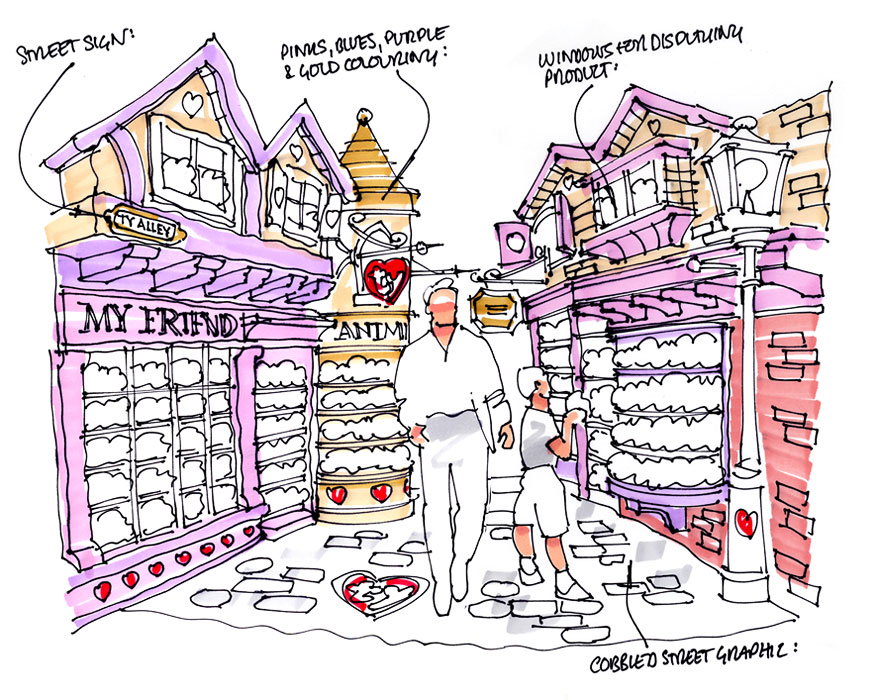 STREET SIGN:
PINKS, BLUES, PURPLE
& GOLD COLOURING:
WINDOWS FOR DISPLAYING
PRODUCT:
TY ALLEY
ty
MY FRIEND
ANIM
ty
COBBLED STREET GRAPHIC: